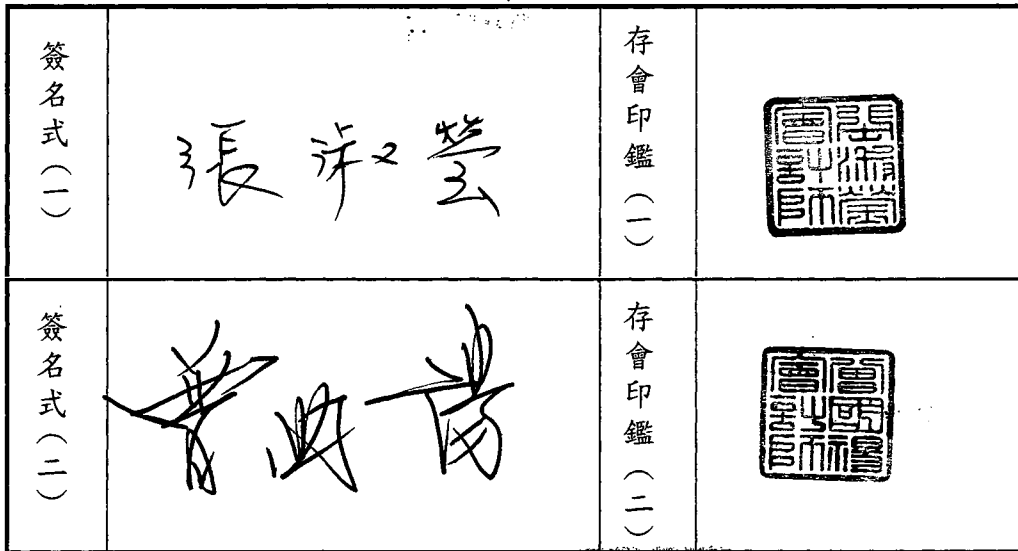 簽名式（一）
張淑瑩
存會印鑑（一）
張淑瑩會計師
簽名式（二）
存會印鑑（二）
曾國禓會計師